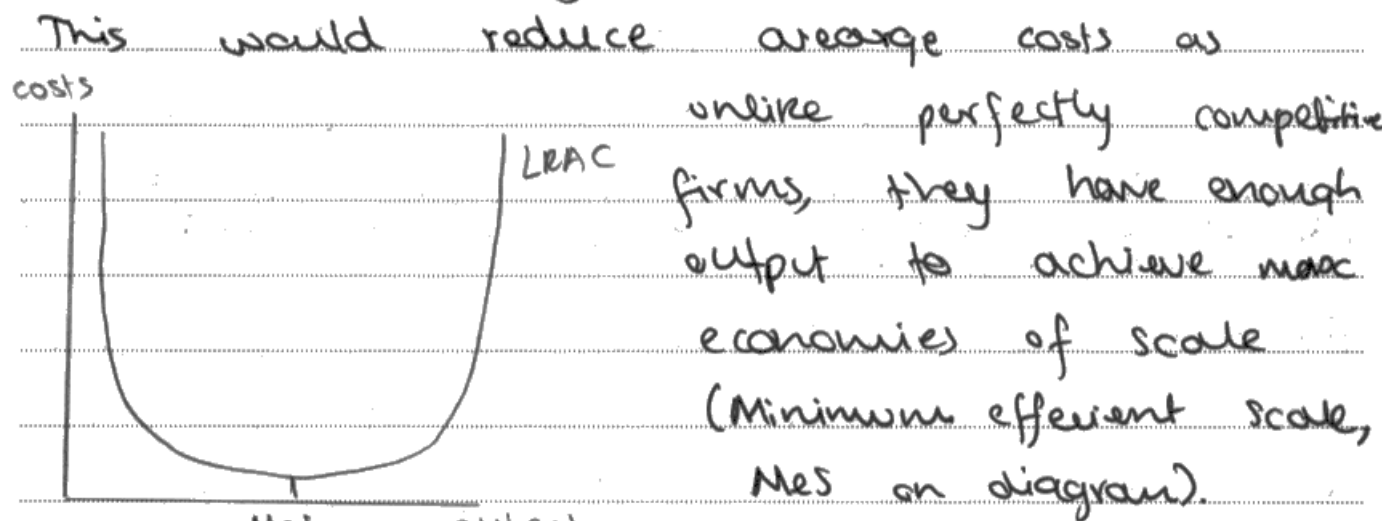 This would reduce average costs as
costs
unlike perfectly competitive
LRAC
firms, they have enough
output to achieve max
economies of scale
(Minimum effecient scale,
MeS on diagram).
output